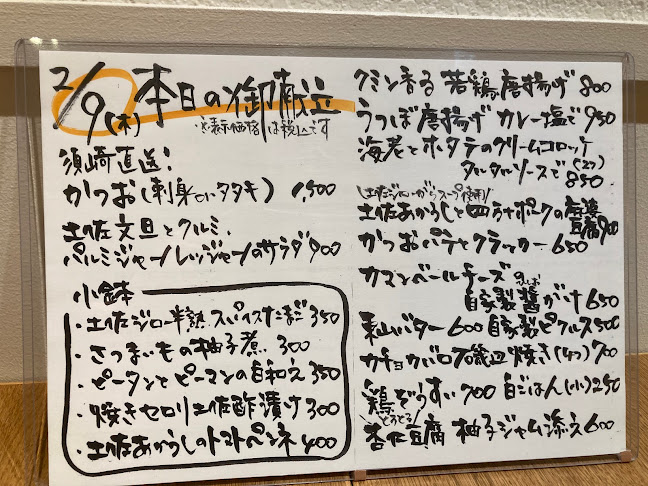 2/9(木) 本日の御献立
※表示価格は税込です
須崎直送!
かつお(刺身orタタキ) 1,500
土佐文旦とクルミ、
パルミジャーノレッジャーノのサラダ 900
小鉢
・土佐ジロー半熟スパイスたまご 350
・さつまいもの柚子煮 300
・ピータンとピーマンの白和え 350
・焼きセロリ土佐酢漬け 300
・土佐あかうしのトマトペンネ 400
クミン香る 若鶏唐揚げ 800
うつぼ唐揚げ カレー塩で 950
海老とホタテのクリームコロッケ
タルタルソースで(2ケ) 850
(土佐ジローがらスープ使用)
土佐あかうしと四万十ポークの麻婆豆腐 900
かつおパテとクラッカー 650
カマンベールチーズの
自家製醤がけ 650
東山バター 600 自家製ピクルス 500
カチョカバロ 磯辺焼き(4つ) 700
鶏ぞうすい 700 白ごはん(小) 250
杏仁豆腐 柚子ジャム添え 600